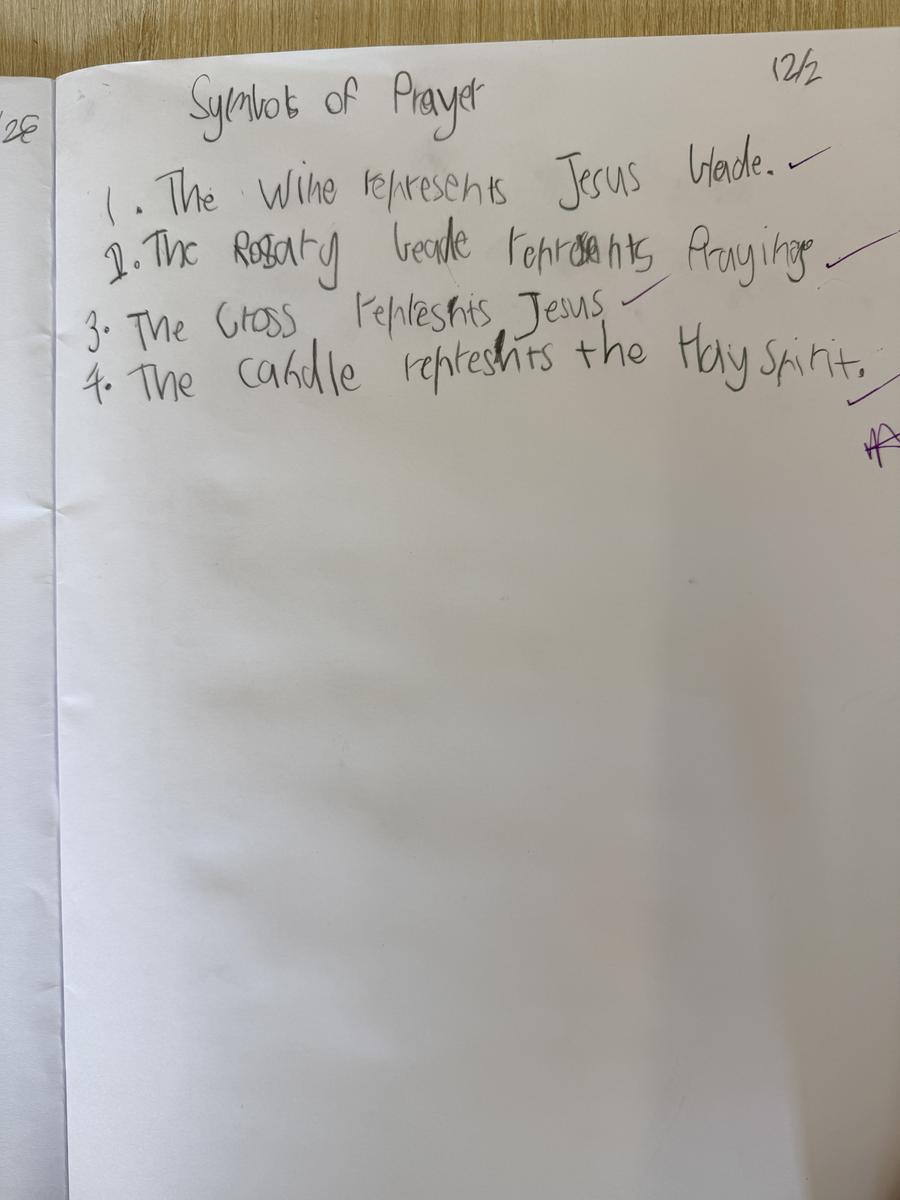 /28
12/2
Symbols of Prayer
1. The Wine represents Jesus blade.
2. The Rosary beade reprasents Praying
3. The Cross represnts Jesus
4. The candle represhts the Holy Spirit.